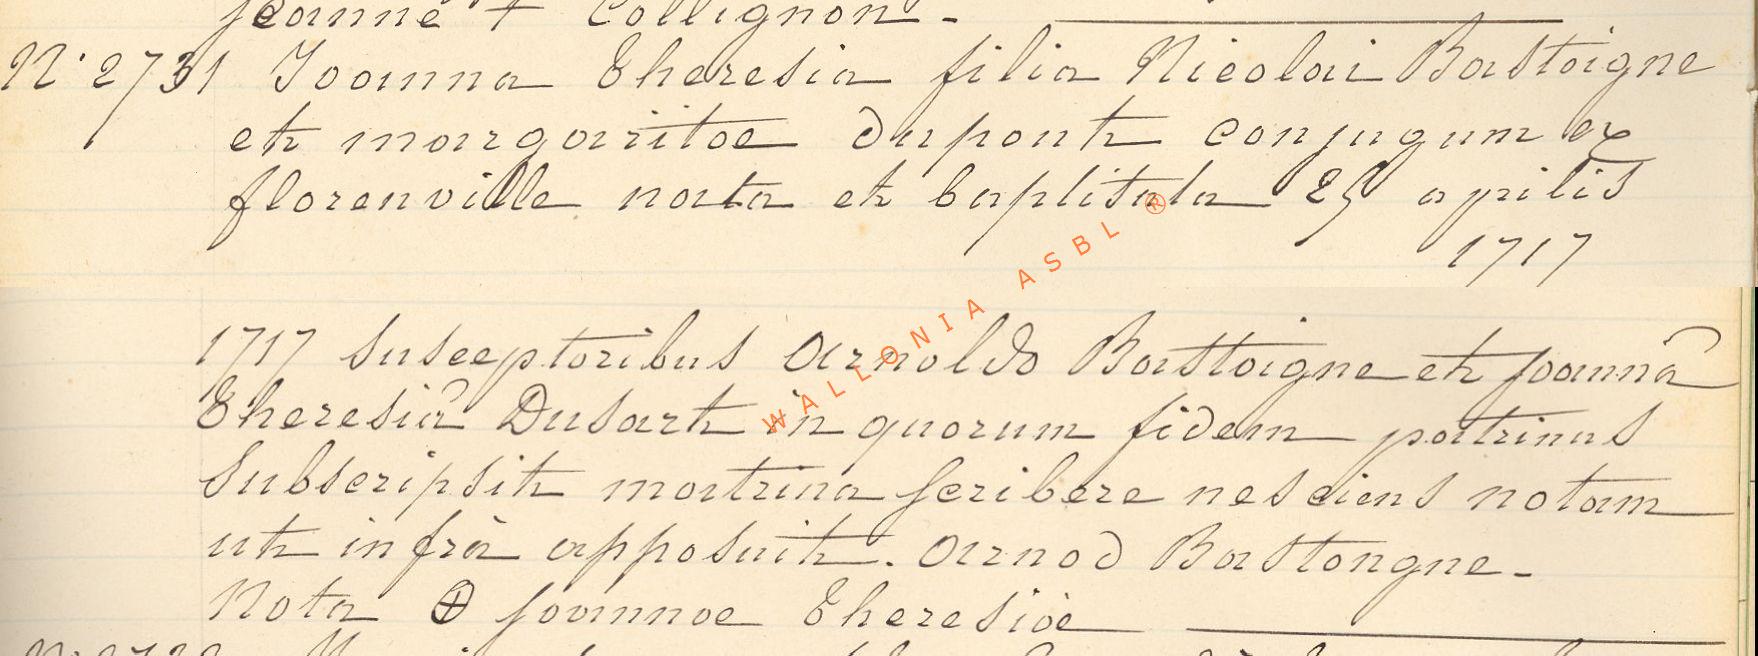 Jeanne + Collignon. -
N° 2731 Joanna Theresia filia Nicolai Bastoigne
et margaritae dupont conjugum ex
florenville nata et baptisata 25 aprilis
1717
1717 susceptoribus Arnoldo Bastoigne et joannâ
Theresiâ Dusart in quorum fidem patrinus
Subscripsit matrina scribere nesciens notam
ut infrà apposuit. Arnod Bastongne. -
Nota ⊕ joannae Theresiae
WALLONIA ASBL ®